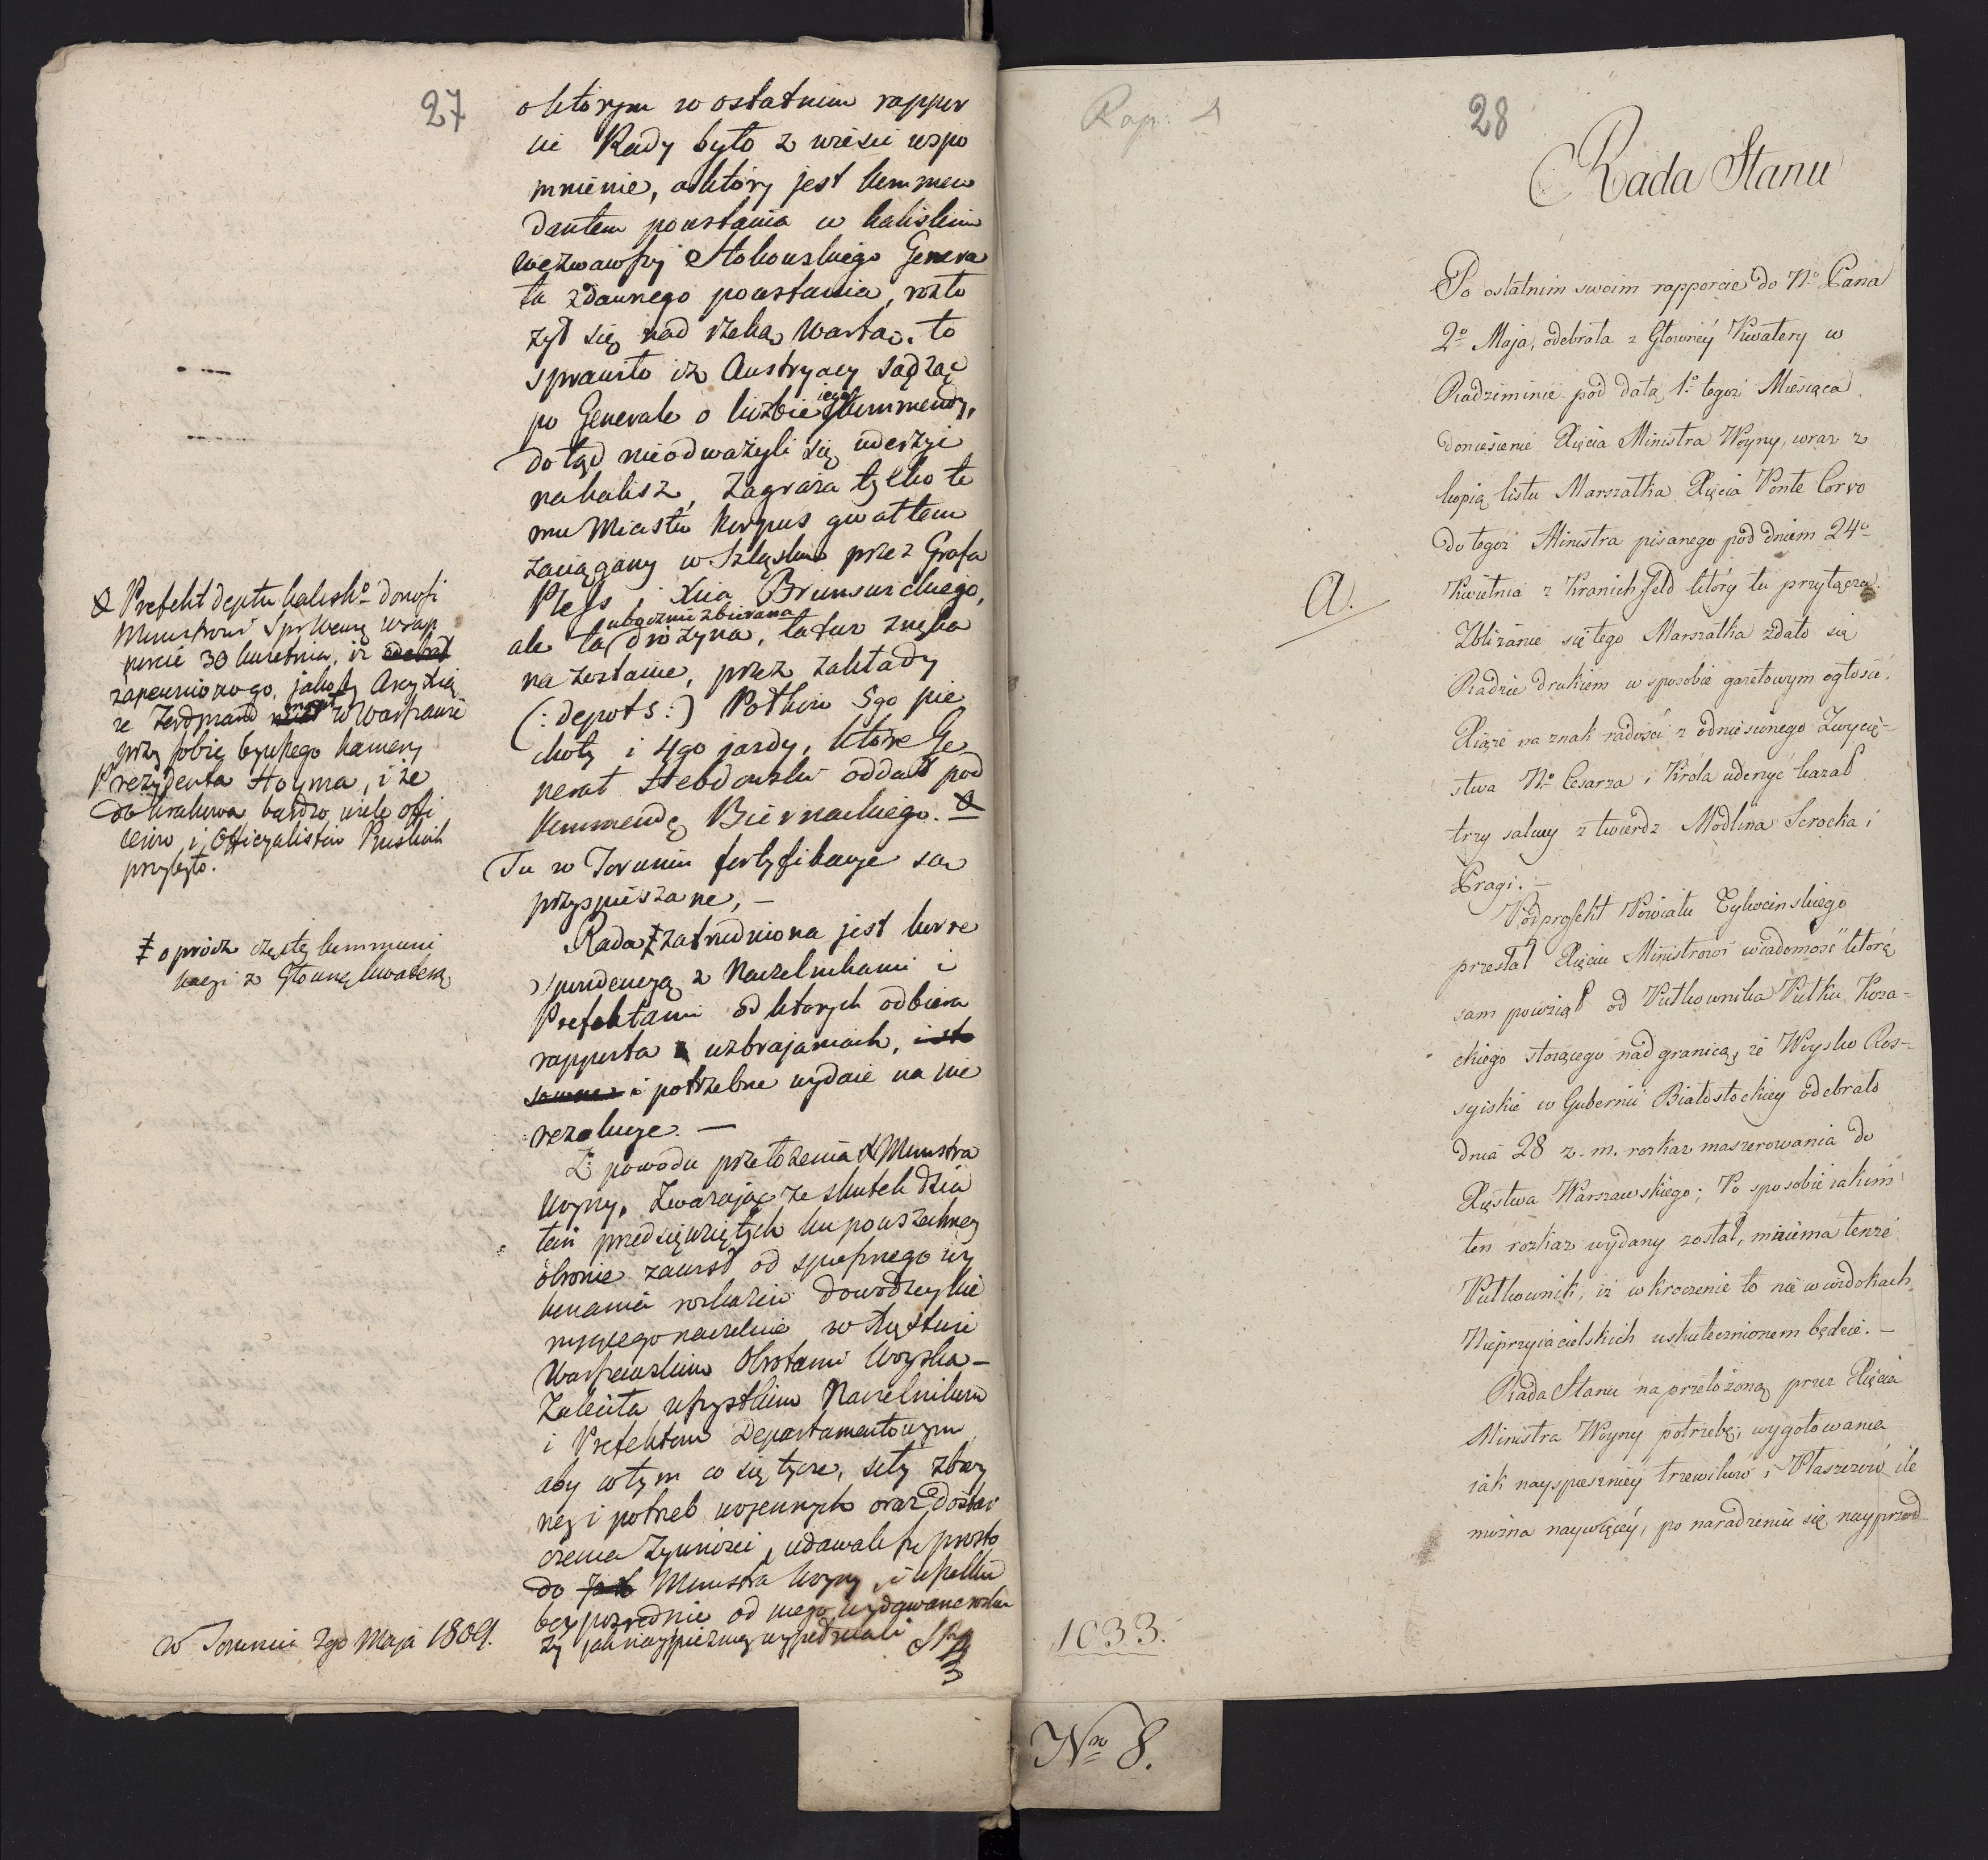 27
o którym w ostatnim rappor
cie Rady było z wieści wspo
mnienie, a który jest kommen
dantem powstania w kaliskim
wezwawszy Stokowskiego Genera
ła zdawnego powstania, rozło
żył się nad rzeką Wartą. to
sprawiło iż Austryacy sądząc
po Generale o liczbie iego kommendy,
dotąd nieodważyli się uderzyć
na kalisz, Zagraża tylko te
mu Miastu korpus gwałtem
zaciągany w Szląsku przez Grafa
Pless i Xcia Brunswickiego,
ale ta ubocznie zbierana drożyna, łatwo znęka
na zostanie, przez zakłady
(: depots :) Półków 5go pie
choty i 4go jazdy, które Ge
nerał Hebdowski oddał pod
kommendę Biernackiego.
Tu w Toruniu fortyfikacye są
przyspieszane, –
Rada ‡ zatrudniona jest korre
spondencyą z Naczelnikami i
Prefektami od których odbiera
rapporta uzbrajaniach,
i potrzebne wydaie na nie
rezolucye. –
Z powodu przełożenia X Ministra
Woyny, Zważając że skutek dzia
łań przedsięwziętych ku powszechney
obronie zawisł od spiesznego wy
konania rozkazów dowodzcy kie
rującego naczelnie w Xięstwie
Warszawskim Obrotami Woyska –
Zaleciła wszystkim Naczelnikom
i Prefektom Departamentowym
aby w tym co się tycze, siły zbroy
ney i potrzeb wojennych oraz dostar
czenia Żywności, udawali się prosto
do Ministra Woyny, i wszelkie
bezpośrednie od niego wydawane rozka
zy jak nayspieszniey wypełniali
Prefekt Deptu kalisko donosi
Ministrowi Spr Wewnę w rap
porcie 30 kwietnia, iż odebrał
zapewnionego, jakoby Arcy Xią
że Ferdynand miał w Warszawie
przy sobie byłszego kamery
Prezydenta Hoyma, i że
do krakowa bardzo wiele offi
cerów i Officyalistów Pruskich
przybyło.
‡ oprócz częstey kommuni
kacyi z Główną kwaterą
w Toruniu 2go Maja 1809.
Rap: 
28
Rada Stanu
Po ostatnim swoim rapporcie do No Pana
2o Maja, odebrała z Głowney Kwatery w
Radziminie pod datą 1o tegoż Miesiąca
doniesienie Xięcia Ministra Woyny, wraz z
kopią listu Marszałka Xięcia Ponte Corvo
do tegoż Ministra pisanego pod dniem 24o
Kwietnia z Kranichfeld który tu przyłącza.
a.
Zbliżanie się tego Marszałka zdało się
Radzie drukiem w sposobie gazetowym ogłosić,
Xiąże na znak radości z odniesionego Zwycię-
stwa No Cesarza i Króla uderzyć kazał
trzy salwy z twierdz Modlina Serocka i
Pragi. –
Podprefekt Powiatu Tykocinskiego
przesłał Xięciu Ministrowi wiadomość którą
sam powziął od Pułkownika Pułku Koza-
ckiego stoiącego nad granicą, że Woysko Ros-
syiskie w Gubernii Białostockiey odebrało
dnia 28 z. m. rozkaz maszerowania do
Xięstwa Warszawskiego; Po sposobie iakim
ten rozkaz wydany został, mniema tenże
Pułkownik, iż wkroczenie to nie w widokach
Nieprzyiacielskich uskutecznionem będzie. –
Rada Stanu na przełożoną przez Xięcia
Ministra Woyny potrzebę, wygotowania
iak nayspieszniey trzewików i Płaszczów ile
można naywięcey, po naradzeniu się nayprzod
1033.
Nro 8.